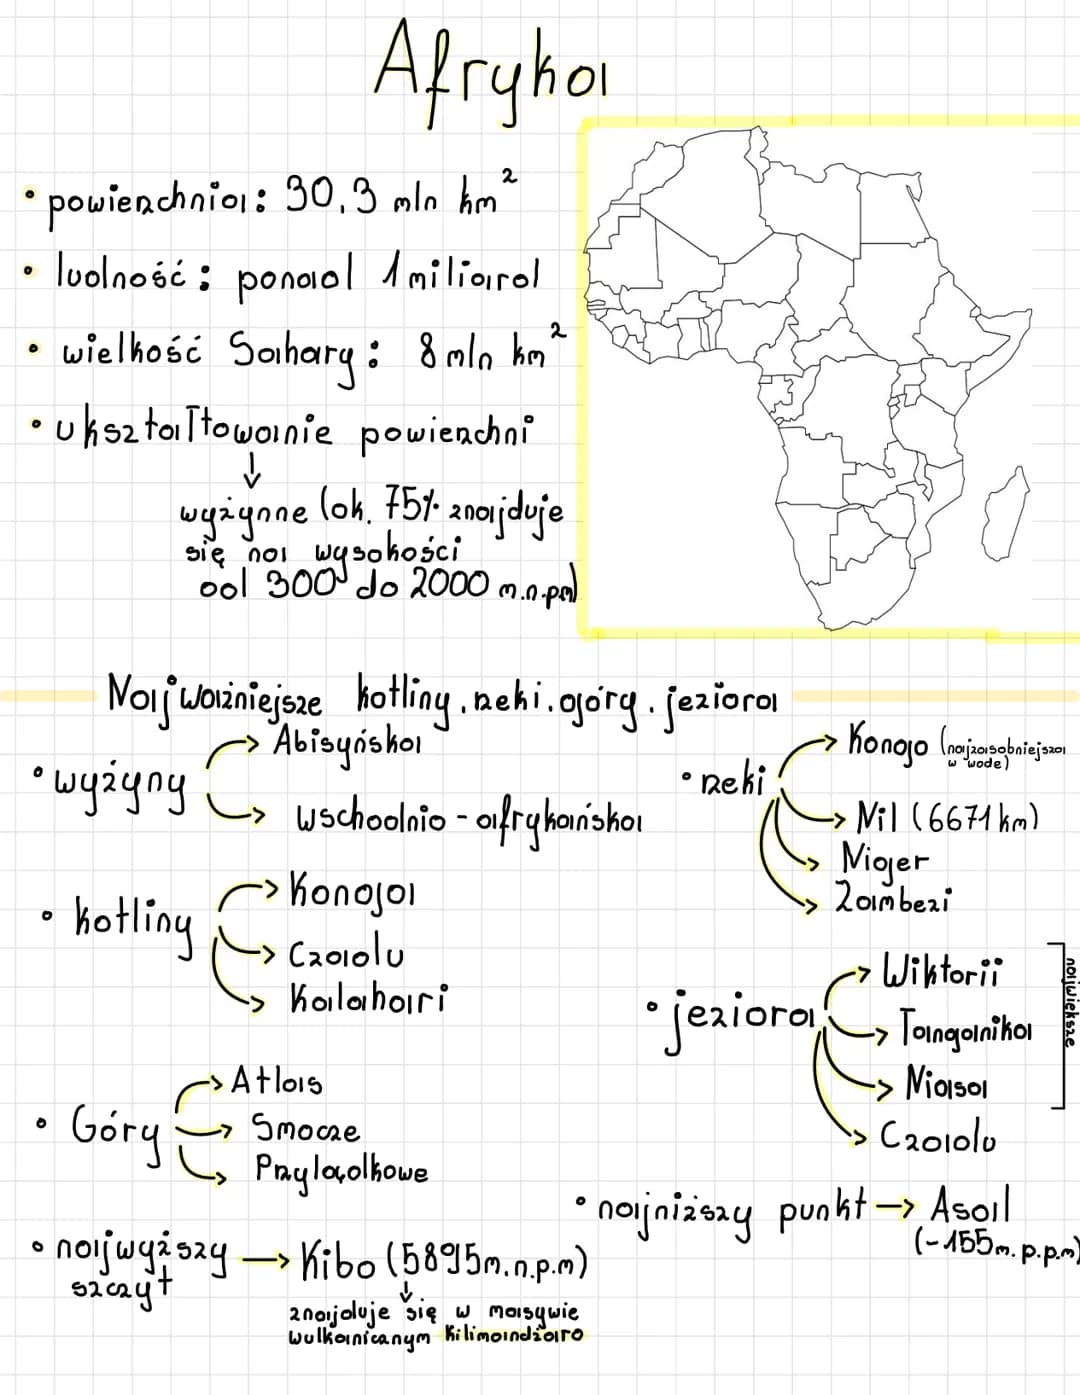 Afryka
• powierzchnia: 30,3 mln km²
• ludność: ponad 1 miliard
• wielkość Sahary: 8 mln km²
• ukształtowanie powierzchni
↓
wyżynne (ok. 75% znajduje
się na wysokości
od 300 do 2000 m.n.pm)
Najważniejsze kotliny, rzeki, góry, jeziora
• wyżyny
→ Abisyńska
→ wschodnio-afrykańska
• rzeki
→ Kongo (najzasobniejsza
w wodę)
→ Nil (6671 km)
→ Niger
→ Zambezi
• kotliny
→ Konga
→ Czadu
→ Kalahari
• jeziora
→ Wiktorii
→ Tanganika
→ Niasa
→ Czadu
największe
• Góry
→ Atlas
→ Smocze
→ Przylądkowe
• najniższy punkt → Asal
(-155m. p.p.m)
• najwyższy
szczyt
→ Kibo (5895m.n.p.m)
↓
znajduje się w masywie
wulkanicznym Kilimandżaro